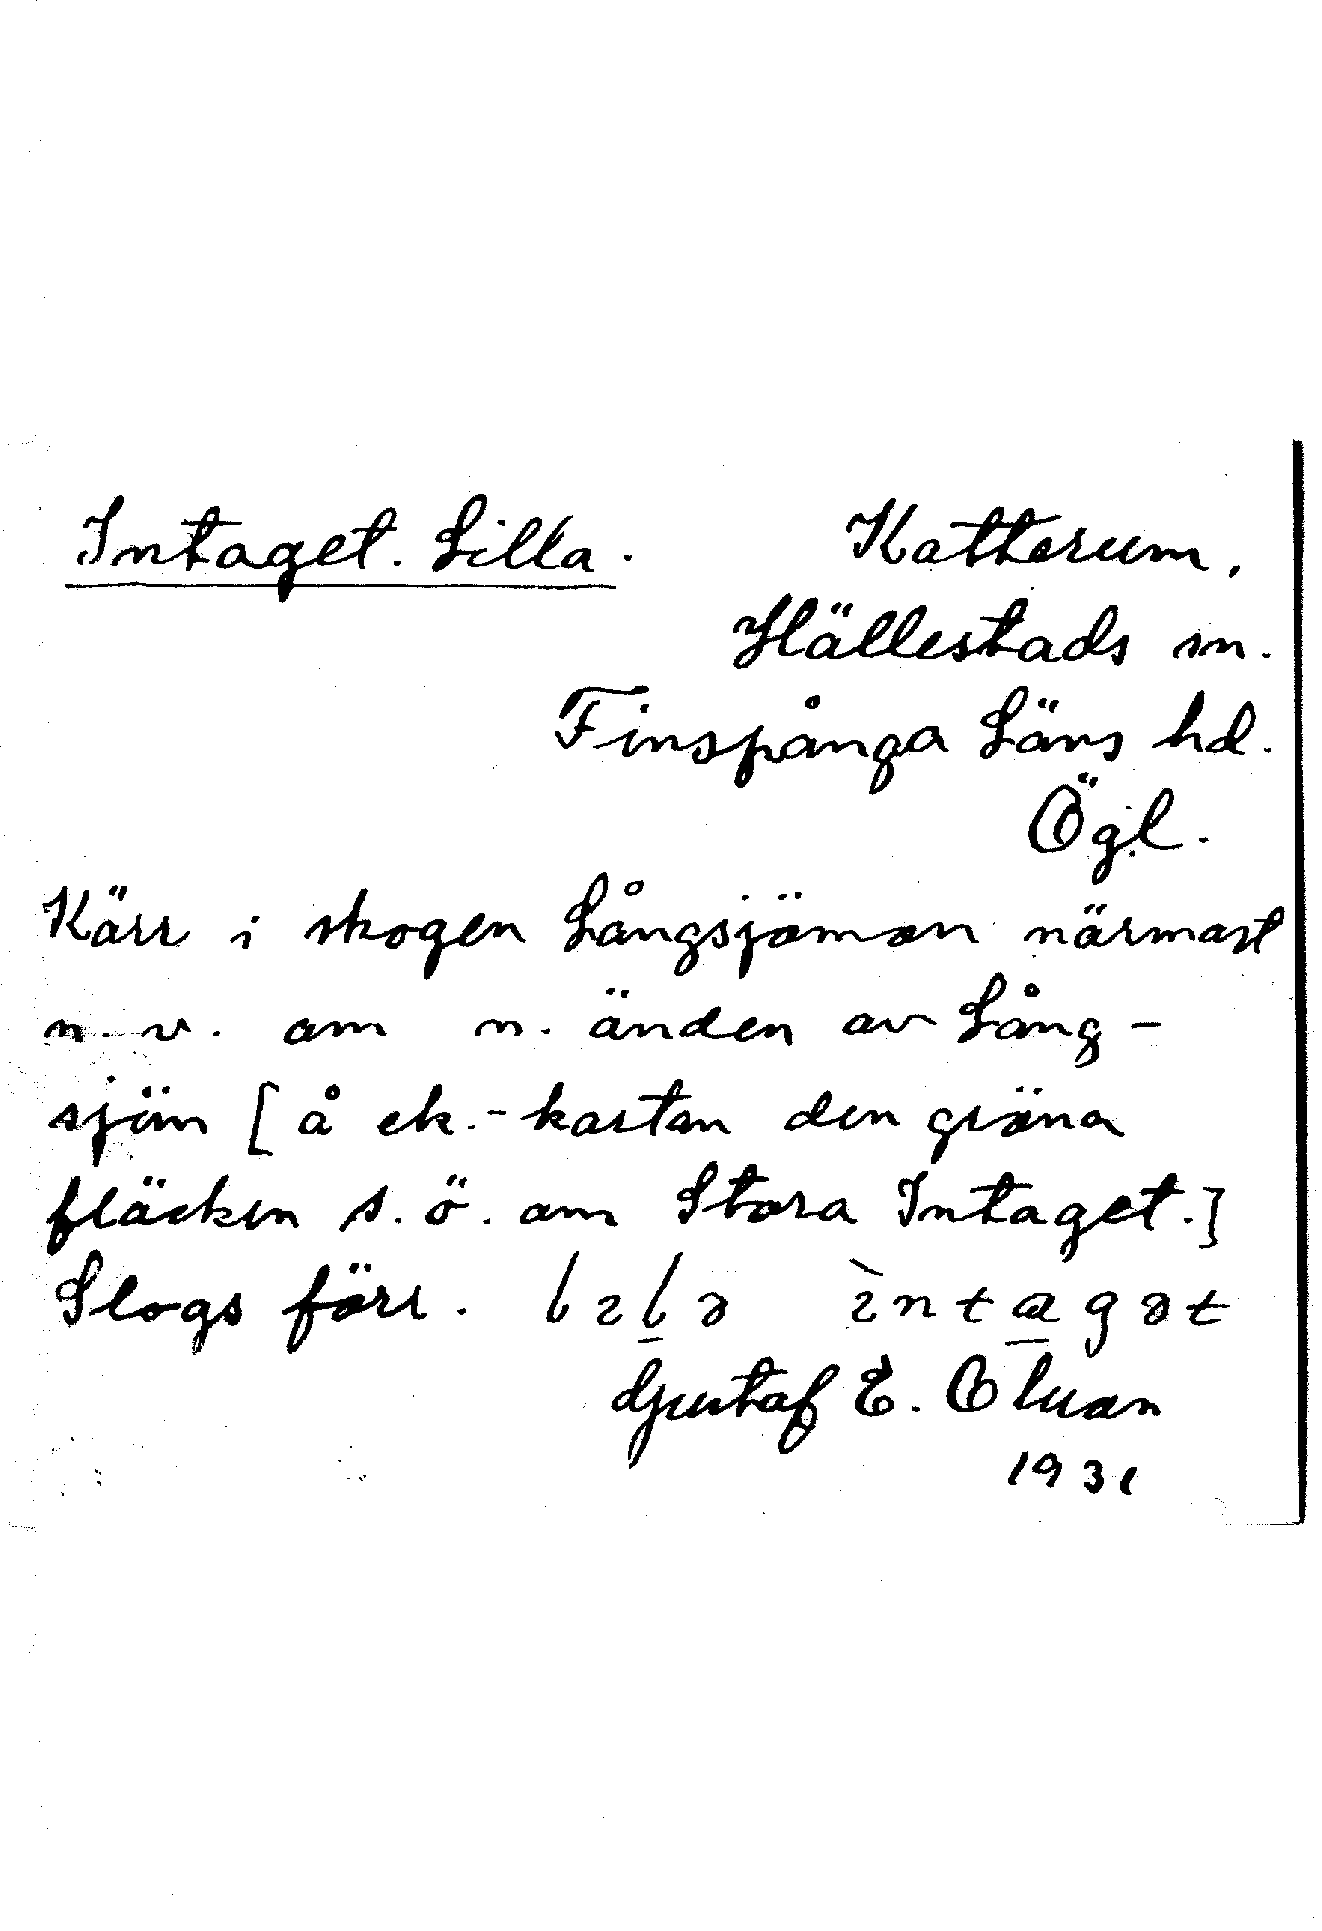 Intaget. Lilla. Katterum,
Hällestads sn.
Finspånga Läns hd.
Ögl.
Kärr i skogen Långsjömon närmast
n. v. om n. änden av Lång-
sjön [å ek.-kartan den gröna
fläcken s. ö. om Stora Intaget.]
Slogs förr. lɩlə ɩ̀ntagət
Gustaf E.
1931